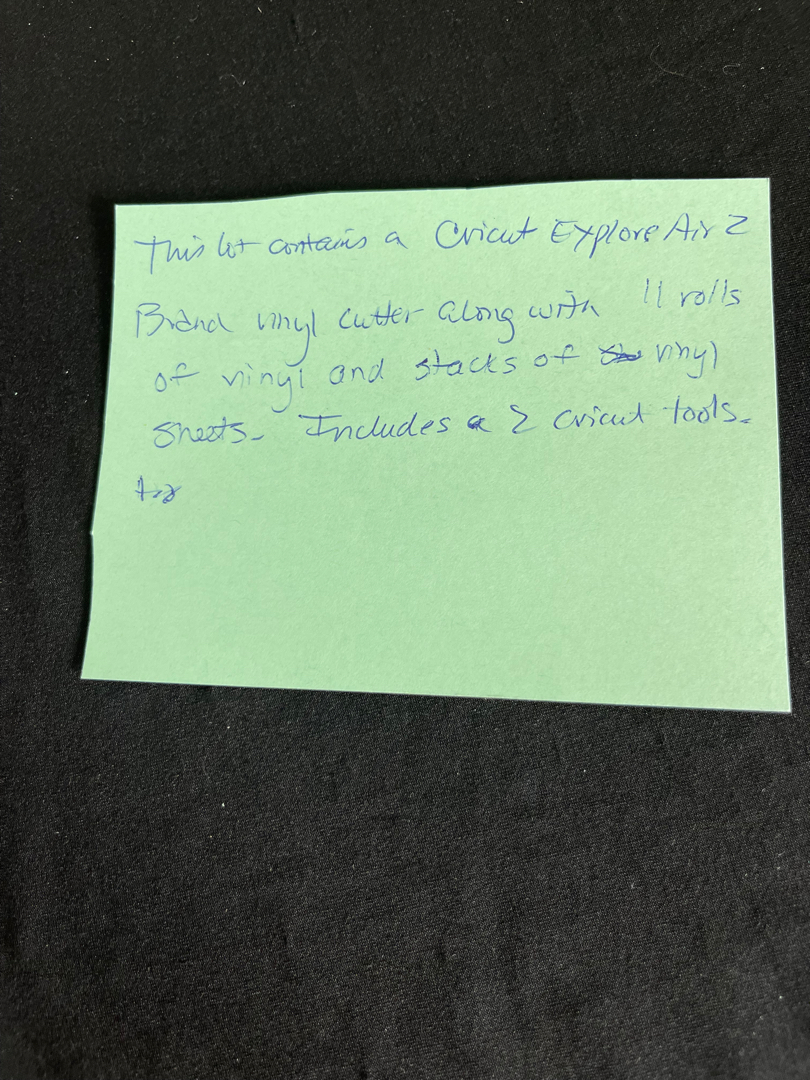 This lot contains a Cricut Explore Air 2
Brand vinyl cutter along with 11 rolls
of vinyl and stacks of vinyl
sheets. Includes 2 cricut tools.